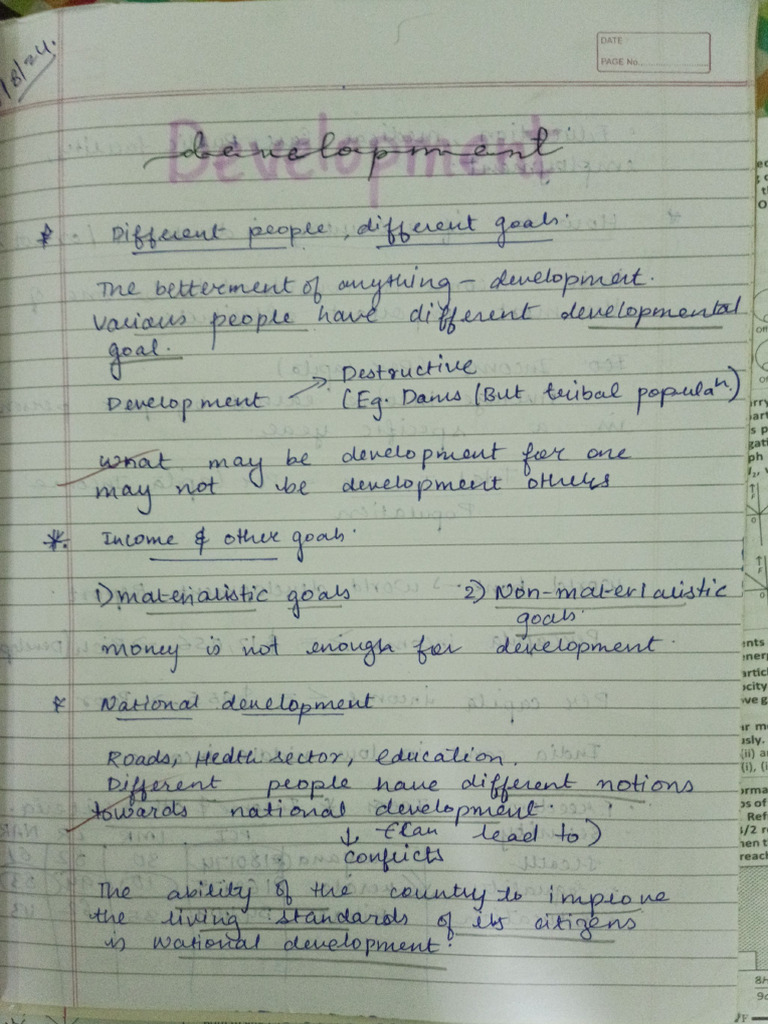 /8/24.
DATE
PAGE No.
Development
* Different people, different goals.
The betterment of anything - development.
Various people have different developmental
goal.
Development → Destructive
(Eg. Dams (But tribal populaⁿ.)
What may be development for one
may not be development others
*. Income & other goals.
1) materialistic goals 2) Non-materialistic
goals.
money is not enough for development.
* National development
Roads, Health sector, education.
Different people have different notions
towards national development.
↓ (Can lead to)
conflicts
The ability of the country to improve
the living standards of its citizens
is National development.